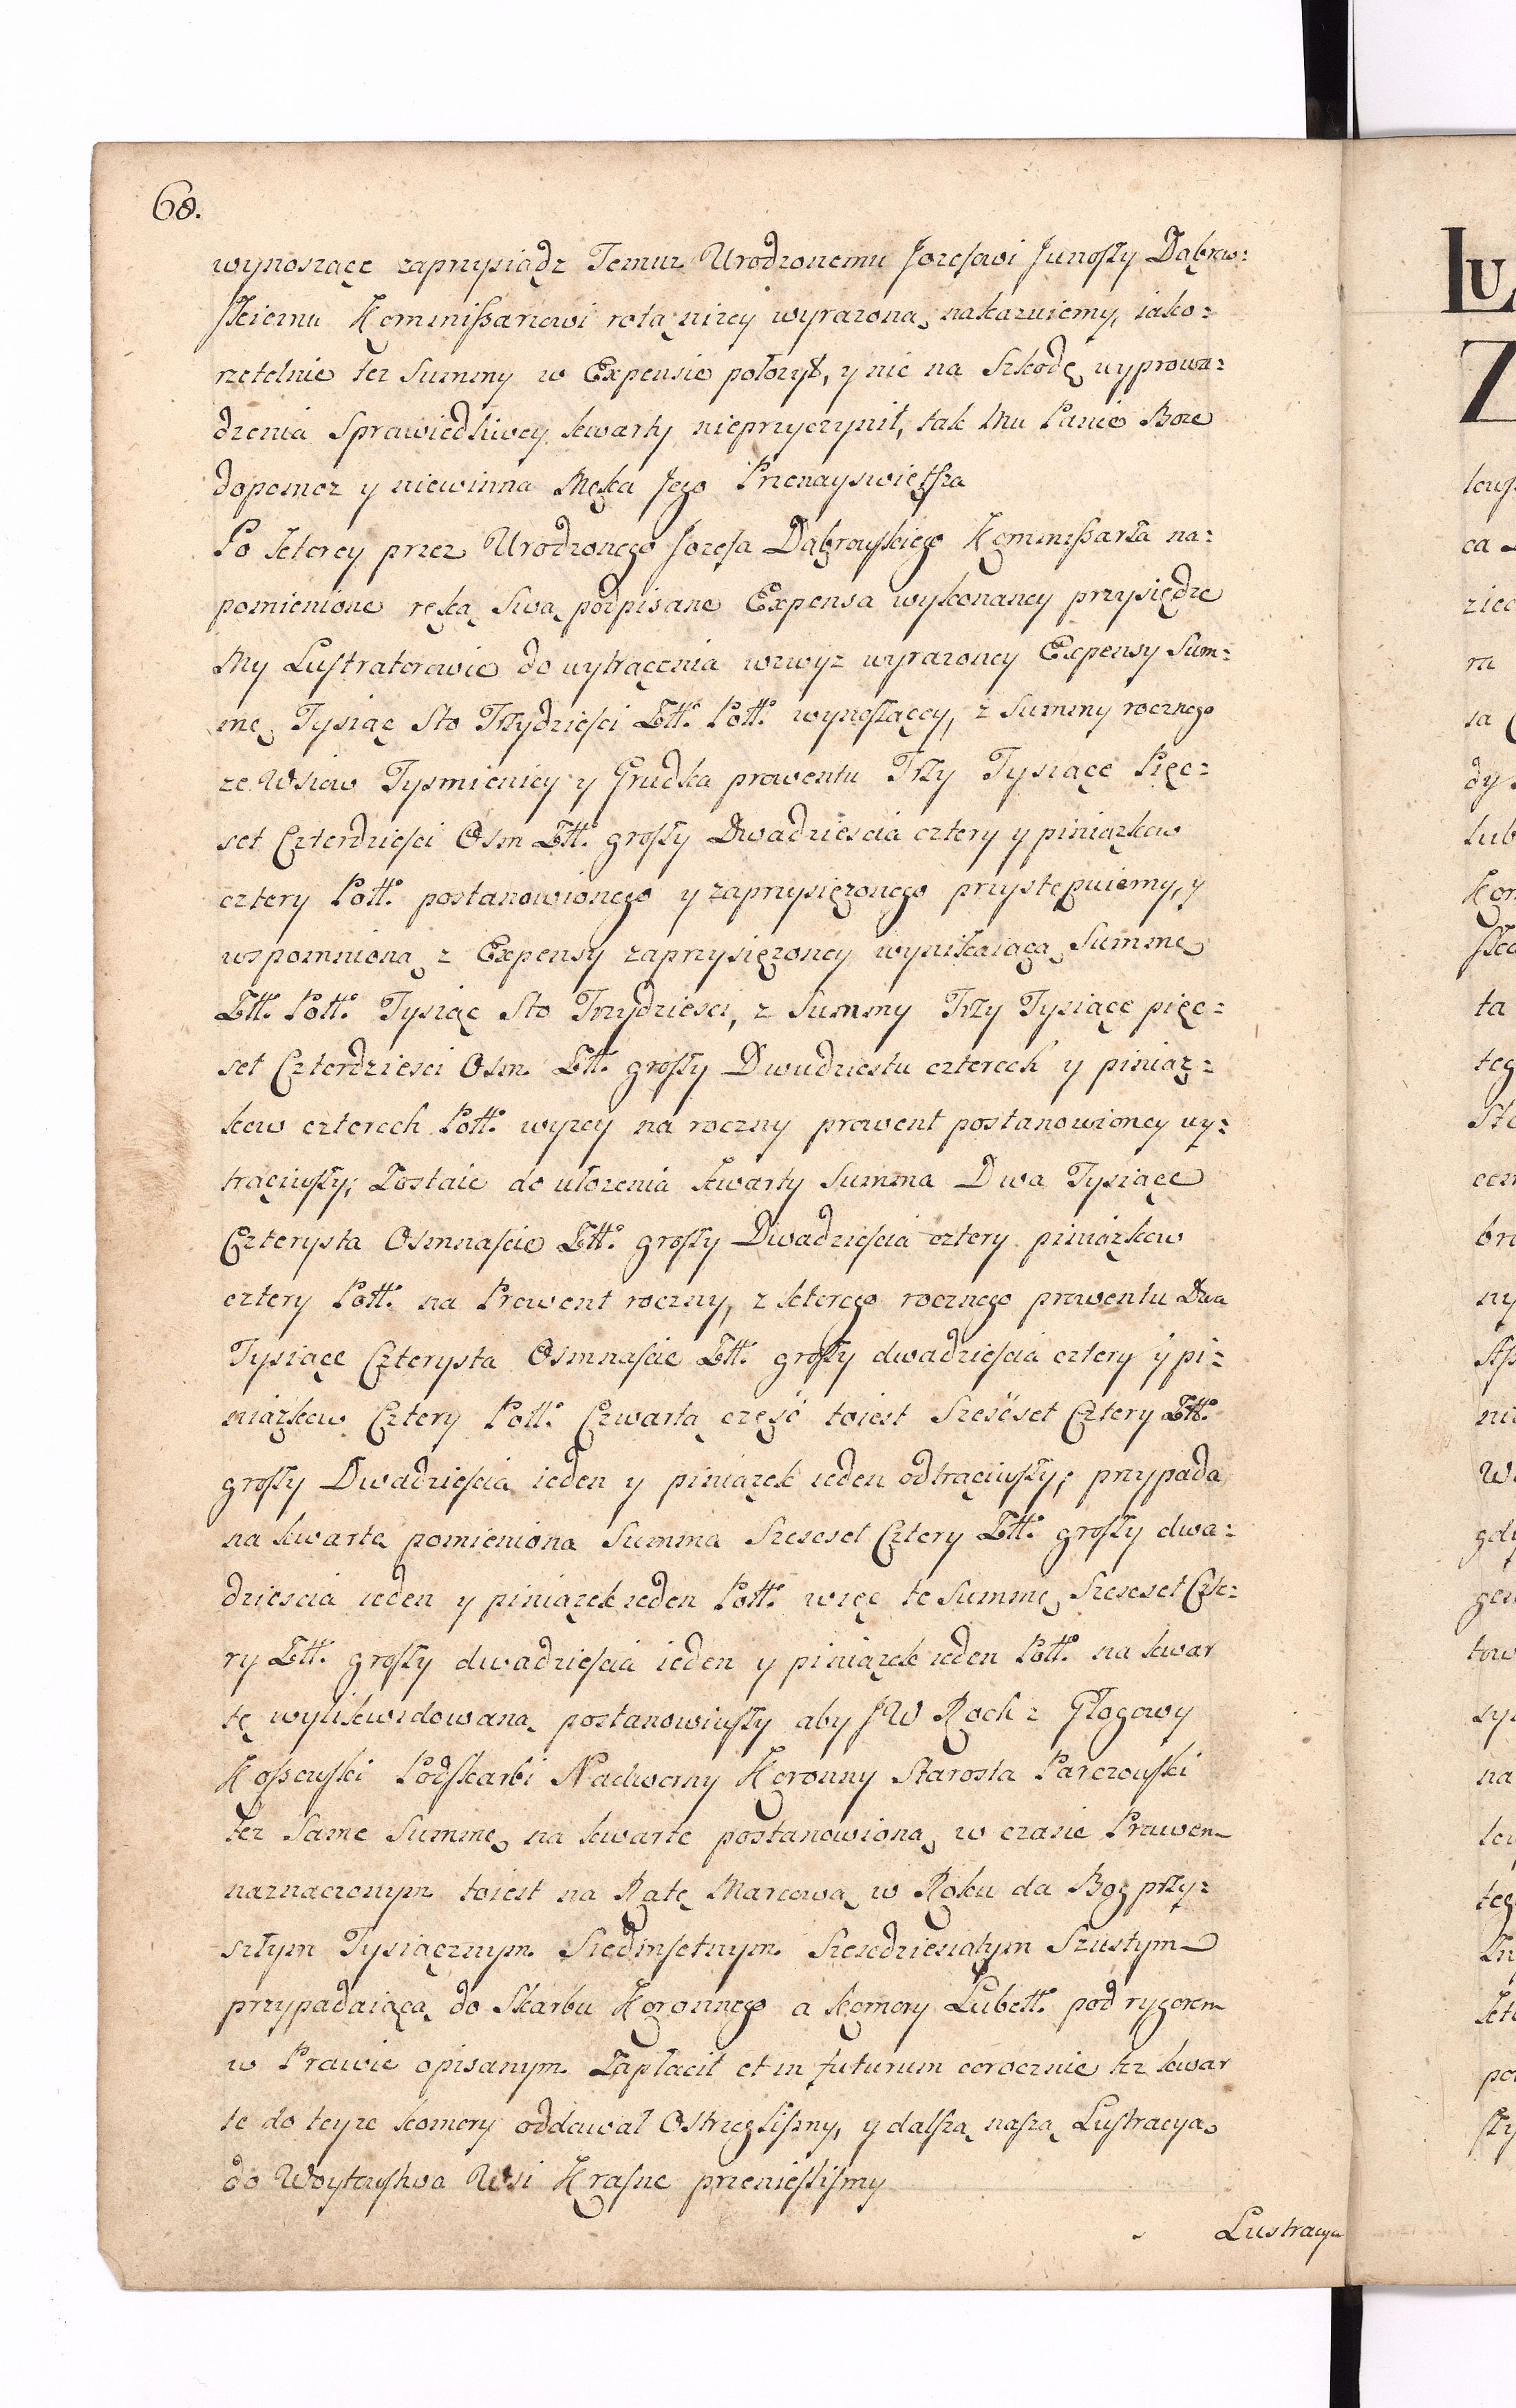 68.
wynoszącę zaprzysiądz Temuz Urodzonemu Jozefowi Junoszy Dąbrow:
skiemu Kommissarzowi rotą nizey wyrazoną nakazuiemy, iako:
rzetelnie tez Summy w Expensie położył, y nic na Szkodę wyprowa:
dzenia Sprawiedliwey kwarty nieprzyczynił, tak Mu Panie Boze
dopomoz y niewinna Męka Jego Przenayswiętsza
Po ktorey przez Urodzonego Jozefa Dąbrowskiego Kommissarza na:
pomienione ręką Swą podpisane Expensa wykonaney przysiędze
My Lustratorowie do wytrącenia wzwyz wyrazoney Expensy Sum:
mę Tysiąc Sto Trzydziesci Złł. Poll. wynoszącey, z Summy rocznego
ze Wsiow Tysmienicy y Grudka prowentu Trzy Tysiące Pięc:
set Czterdziesci Osm Złł. groszy Dwadziescia cztery y piniązkow
cztery Poll. postanowionego y zaprzysięzonego przystępuiemy, y
wspomnioną z Expensy zaprzysięzoney wynikaiącą Summę
Złł. Poll. Tysiąc Sto Trzydziesci, z Summy Trzy Tysiące pięc:
set Czterdziesci Osm Złł. groszy Dwudziestu czterech y piniąz:
kow czterech Poll. wyzey na roczny prowent postanowioney wy:
trąciwszy; Zostaie do ułozenia kwarty Summa Dwa Tysiące
Czterysta Osmnascie Złł. groszy Dwadziescia cztery piniązkow
cztery Poll. na Prowent roczny, z ktorego rocznego prowentu Dwa
Tysiące Czterysta Osmnascie Złł. groszy dwadziescia cztery y pi:
niązkow Cztery Poll. Czwartą część toiest Sześcset Cztery Złł.
groszy Dwadziescia ieden y piniązek ieden odtrąciwszy; przypada
na kwartę pomieniona Summa Szescset Cztery Złł. groszy dwa:
dziescia ieden y piniązek ieden Poll. więc te Summę Szescset Czte:
ry Złł. groszy dwadziescia ieden y piniązek ieden Poll. na kwar
tę wylikwidowaną postanowiwszy aby JW Roch z Głogowy
Kossowski Podskarbi Nadworny Koronny Starosta Parczowski
tez Same Summę na kwarte postanowioną w czasie Prawem
naznaczonym toiest na Ratę Marcową w Roku da Bog przy:
szłym Tysiącznym Siedmsetnym Szescdziesiatym Szustym
przypadaiącą do Skarbu Koronnego a komory Lubell. pod rygorem
w Prawie opisanym Zapłacił et in futurum corocznie tez kwar
te do teyze komory oddawał Ostrzeglismy, y dalszą naszą Lustracyą
do Woytowstwa Wsi Krasne przenieslismy
Lustracya